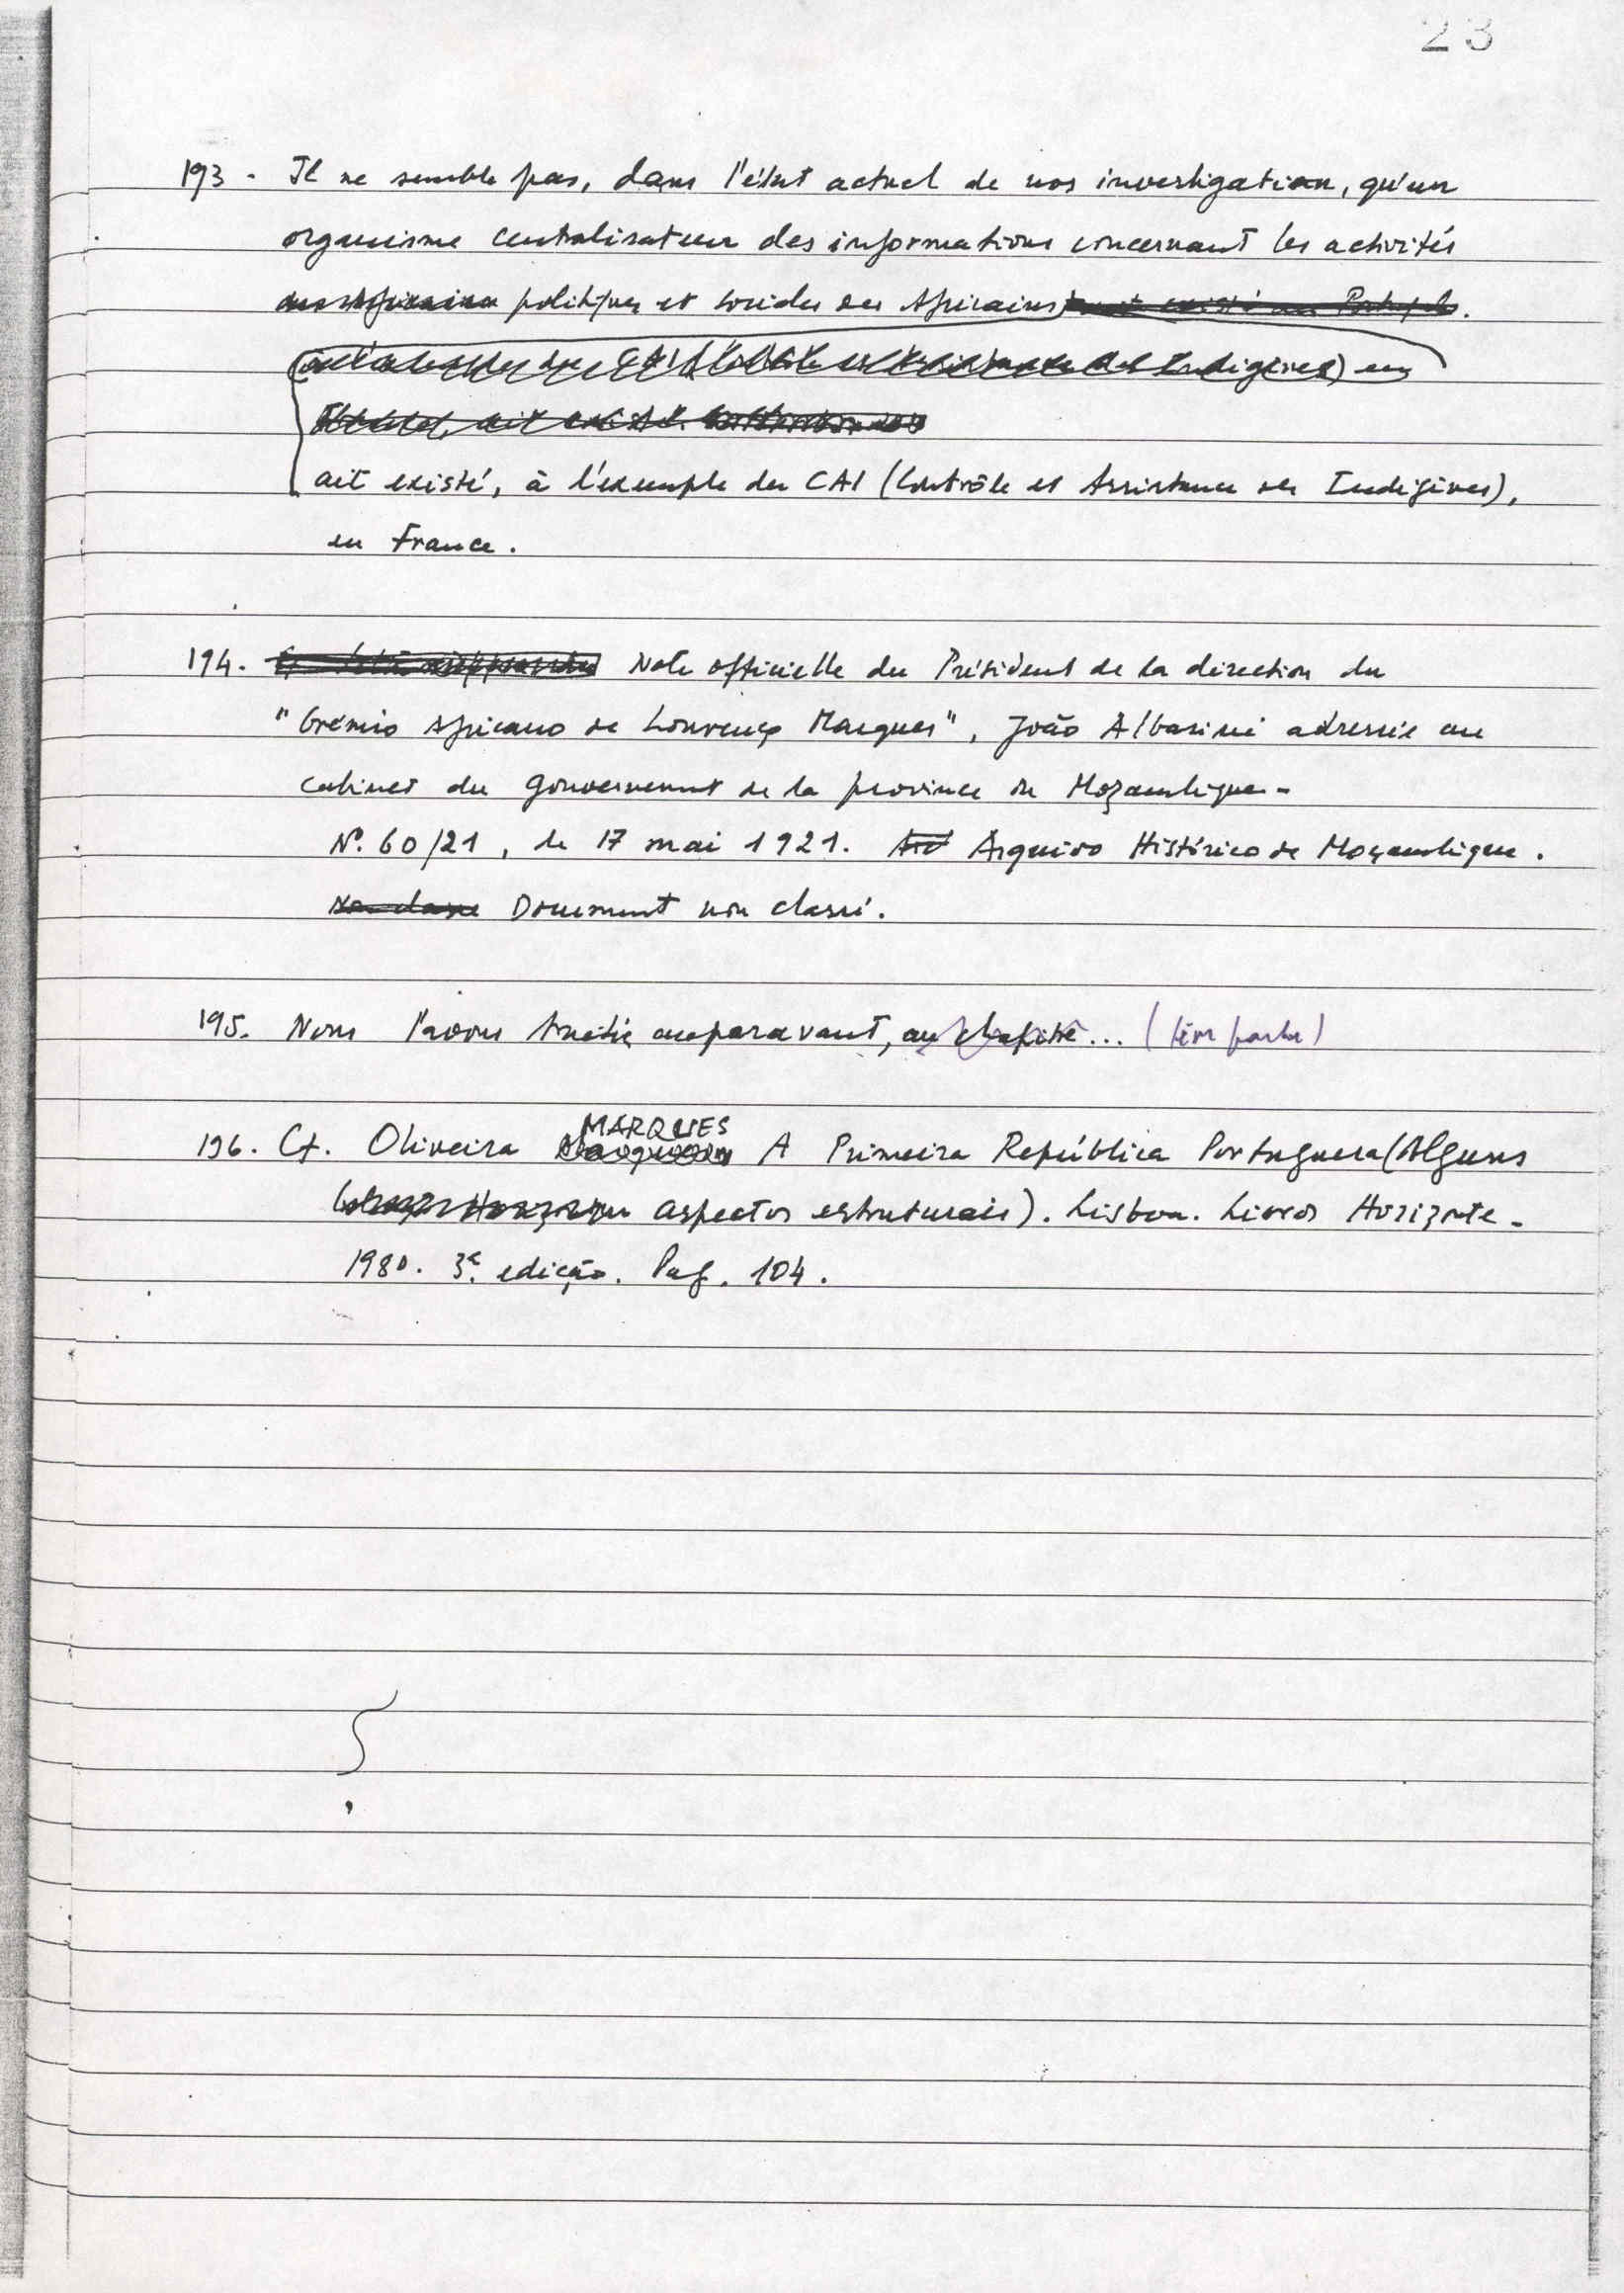 23
193 - Il ne semble pas, dans l'état actuel de nos investigation, qu'un
organisme centralisateur des informations concernant les activités
des Africains politiques et sociales des Africains ait existé au Portugal.
(à l'exemple du CAI (Contrôle et Assistance des Indigènes) en
France, ait existé.
ait existé, à l'exemple du CAI (Contrôle et Assistance des Indigènes),
en France.
194. Note officielle du Président de la direction du
"Grémio Africano de Lourenço Marques", João Albasini adressée au
cabinet du Gouvernement de la province de Mozambique -
Nº. 60/21, le 17 mai 1921. Arquivo Histórico de Moçambique.
Non classé Document non classé.
195. Nous l'avons traité auparavant, au chapitre ... (
196. Cf. Oliveira MARQUES A Primeira República Portuguesa (Alguns
aspectos estruturais). Lisboa. Livros Horizonte -
1980. 3ª. edição. Pag. 104.